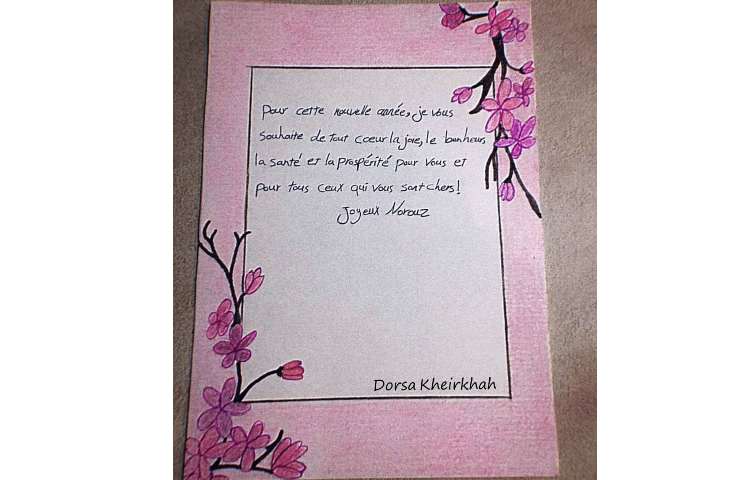 Pour cette nouvelle année, je vous
souhaite de tout coeur la joie, le bonheur,
la santé et la prospérité pour vous et
pour tous ceux qui vous sont chers!
Joyeux Norouz
Dorsa Kheirkhah